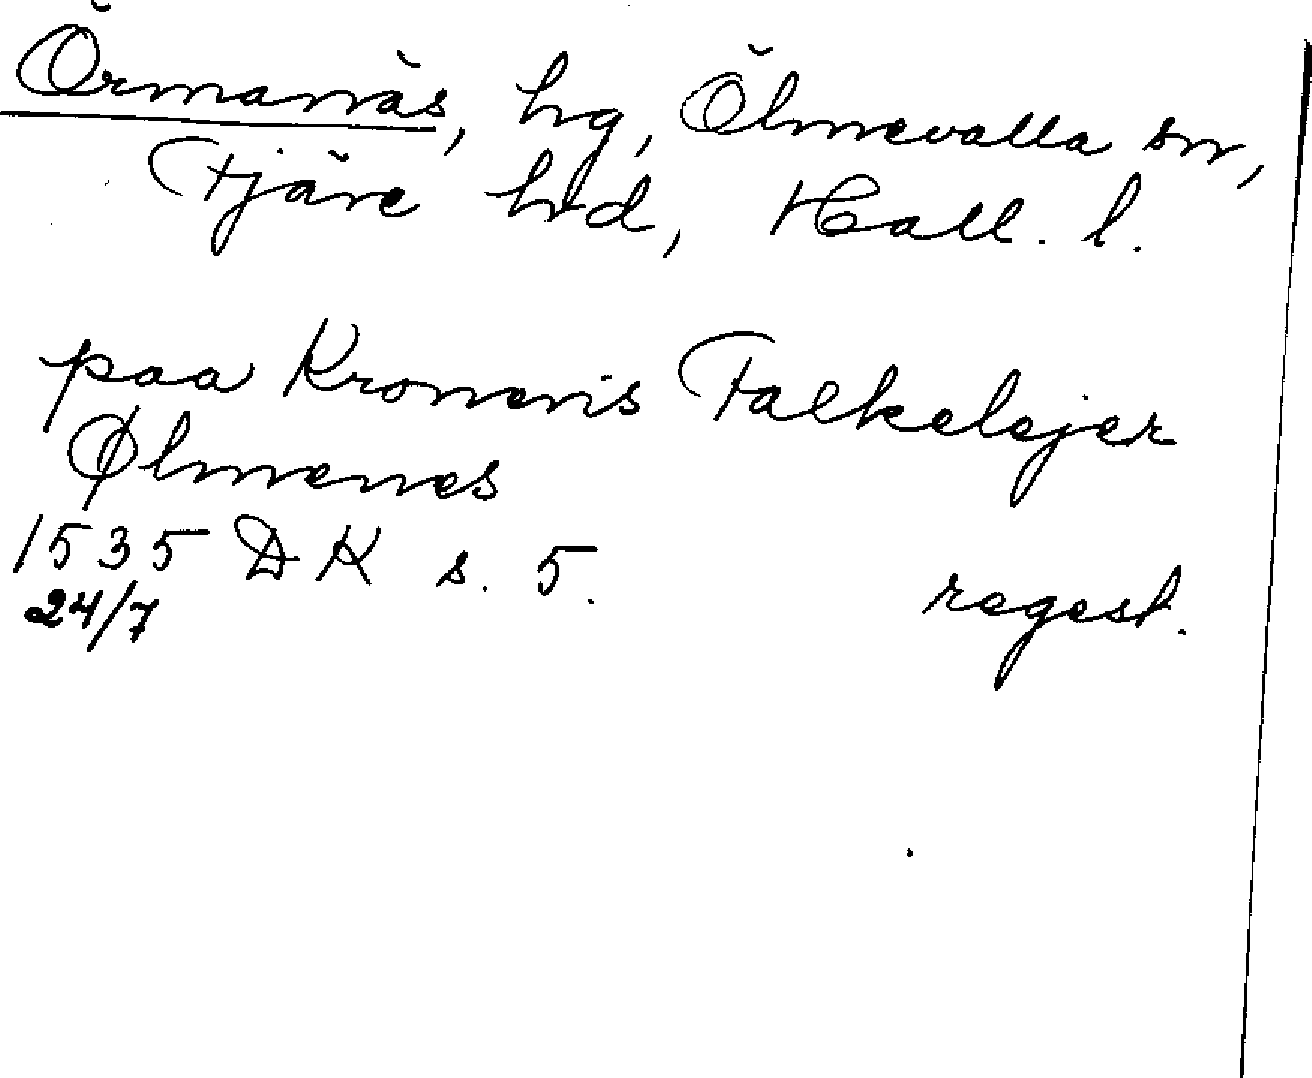 Örmanäs, hg, Ölmevalla sn,
Fjäre hd, Hall. l.
paa Kronens Falkelejer
Ølmenes
1535 DK s. 5. regest.
24/7